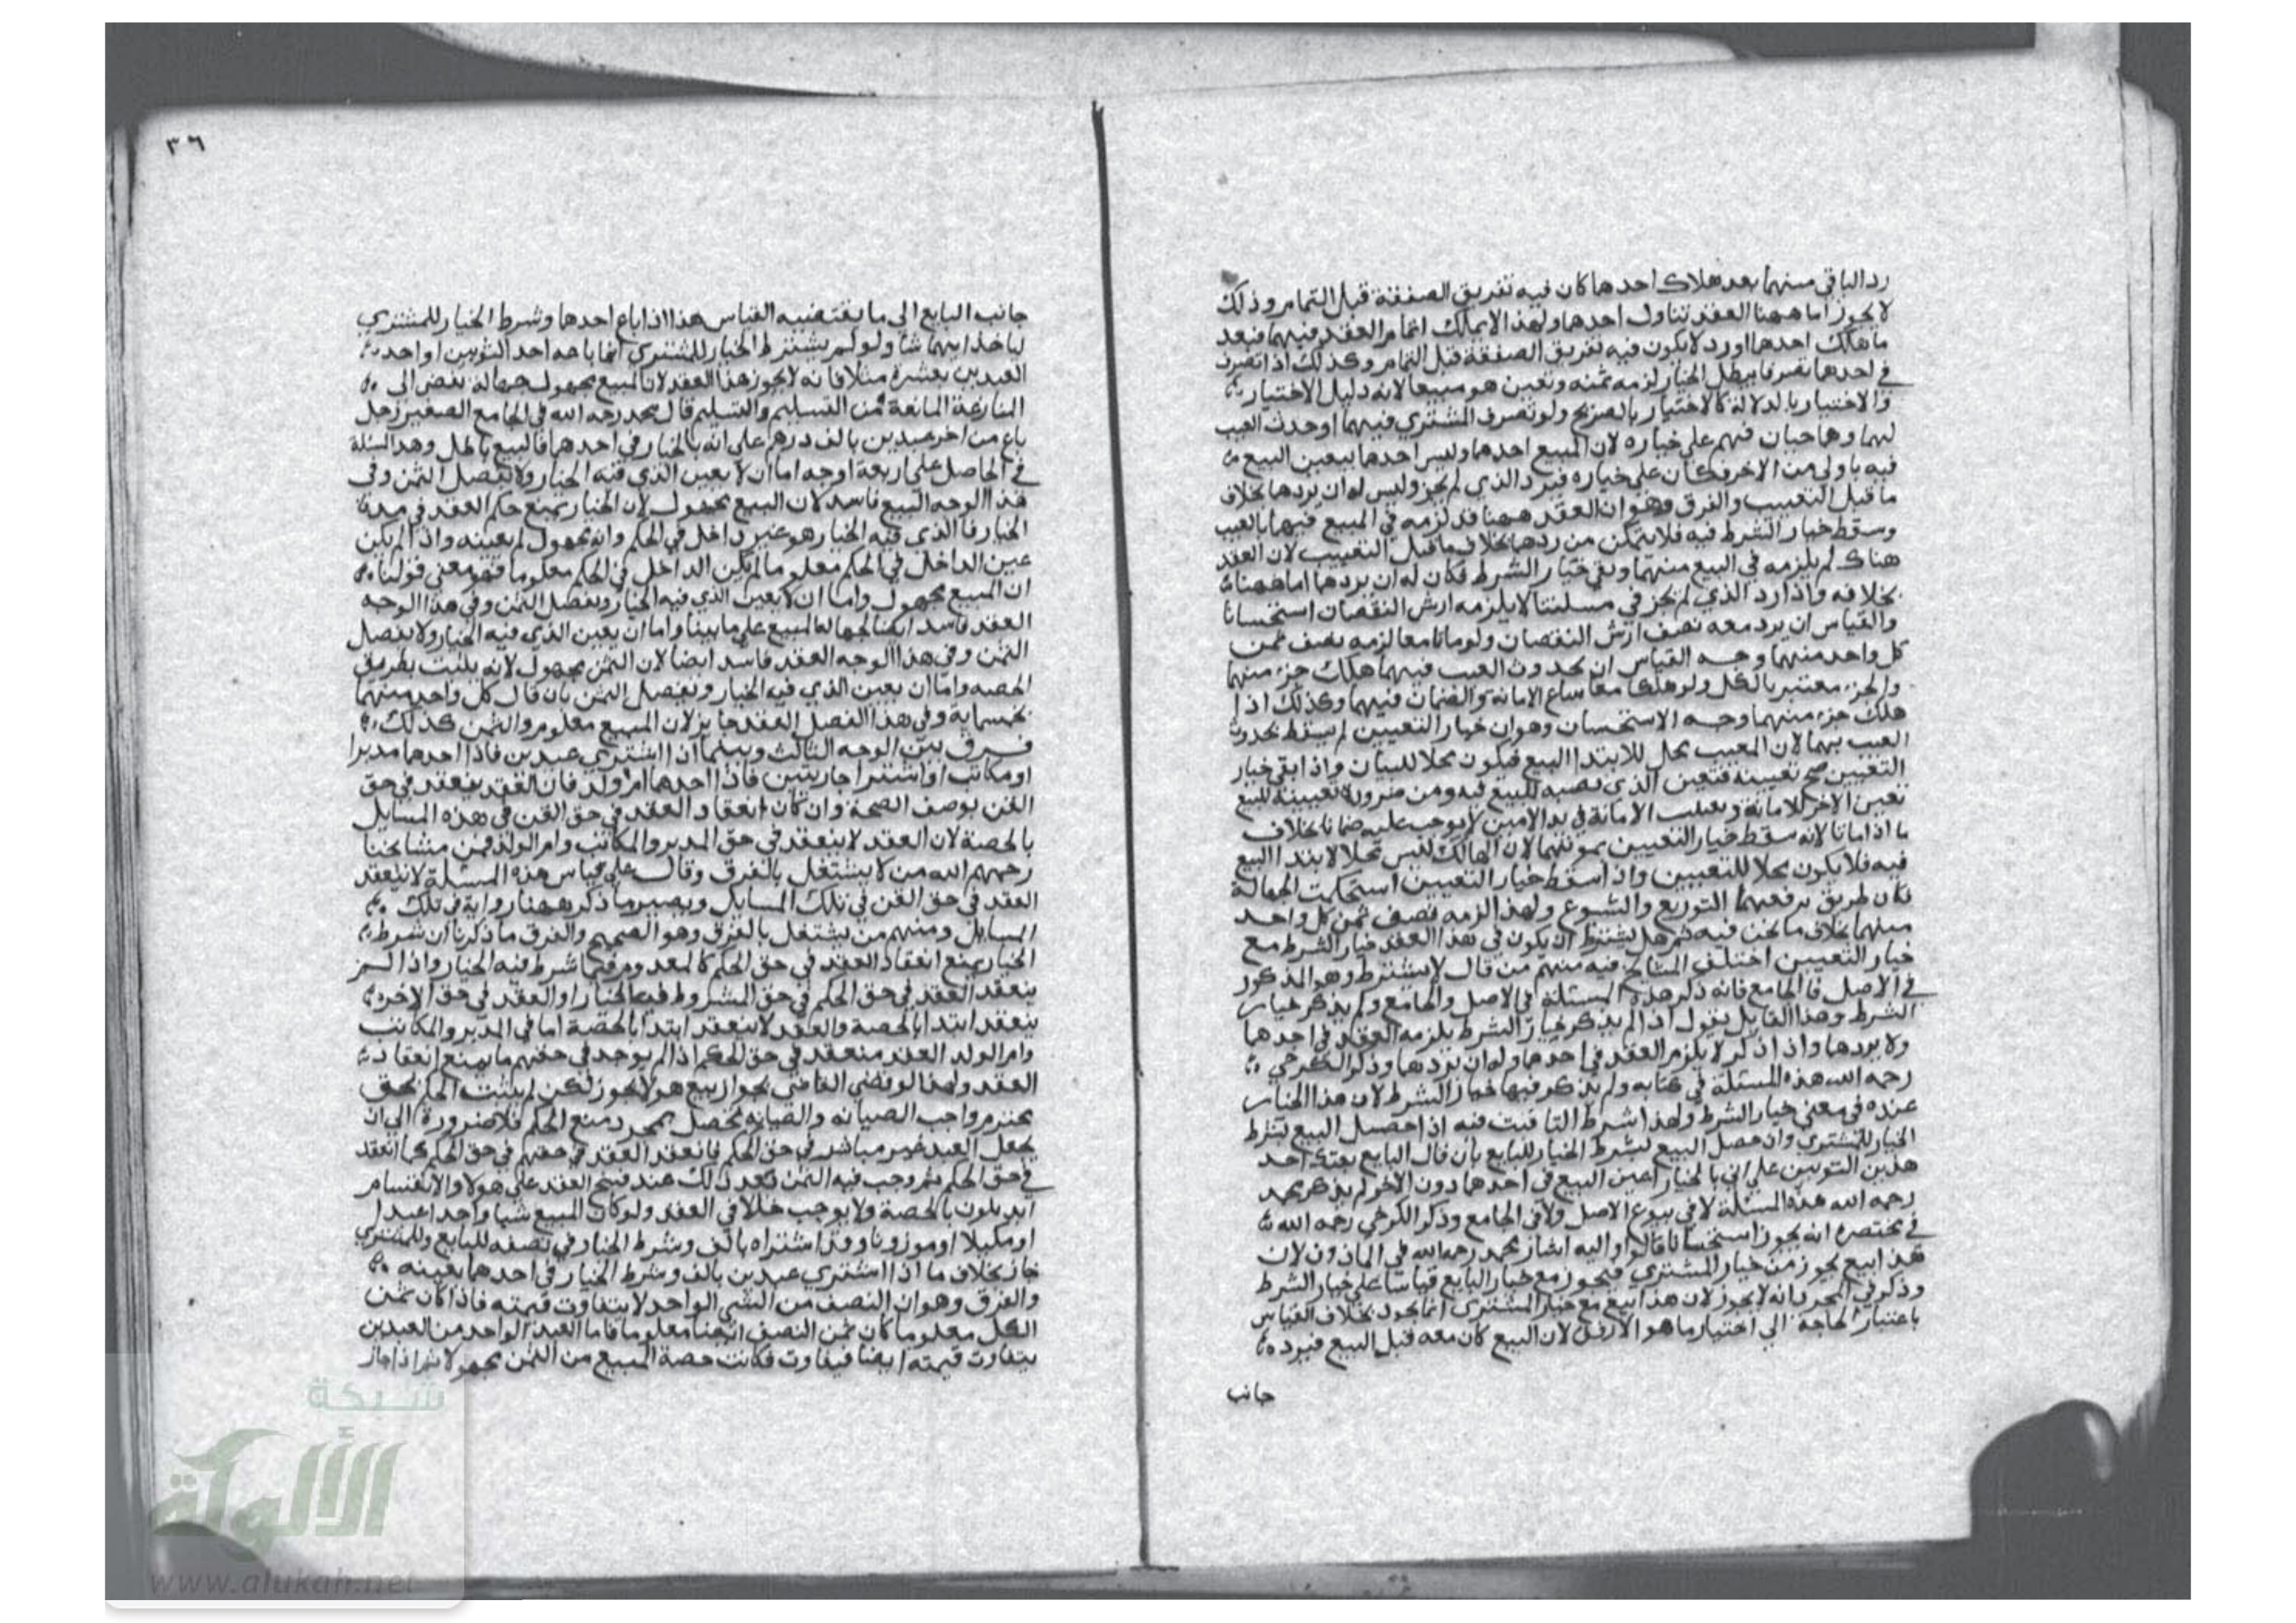 رد الباقي منهما بعد هلاك احدهما كان فيه تفريق الصفقة قبل التمام وذلك
لا يجوز اما ههنا العقد تناول احدهما ولهذا لا يملك اتمام العقد فيهما فبعد
ما هلك احدهما او رد لا يكون فيه تفريق الصفقة قبل التمام وكذلك اذا تصرف
في احدهما تصرفا يبطل الخيار لزمه ثمنه وتعين هو مبيعا لانه دليل الاختيار
والاختيار بالدلالة كالاختيار بالصريح ولو تصرف المشتري فيهما او حدث العيب
بهما وهما حيان فهو على خياره لان المبيع احدهما وليس احدهما بتعين البيع
فيه باولى من الاخر فكان على خياره فيرد الذي لم يجز وليس له ان يردهما بخلاف
ما قبل التعييب والفرق وهو ان العقد ههنا قد لزمه في المبيع فيهما بالعيب
وسقط خيار الشرط فيه فلا يتمكن من ردهما بخلاف ما قبل التعييب لان العقد
هناك لم يلزمه في البيع منهما وبقي خيار الشرط فكان له ان يردهما اما ههنا
بخلافه واذا رد الذي لم يجز في مسئلتنا لا يلزمه ارش النقصان استحسانا
والقياس ان يرد معه نصف ارش النقصان ولو ماتا معا لزمه نصف ثمن
كل واحد منهما وجه القياس ان بحدوث العيب فيهما هلك جزء منهما
والجزء معتبر بالكل ولو هلكا معا شاع الامانة والضمان فيهما وكذلك اذا
هلك جزء منهما وجه الاستحسان وهو ان خيار التعيين لم يسقط بحدوث
العيب بهما لان المعيب محل للابتدا البيع فيكون محلا للبيان واذا بقي خيار
التعيين صح تعيينه فتعين الذي نصبه للبيع فيه ومن ضرورة تعيينه للبيع
تعين الاخر للامانة وتعيب الامانة في يد الامين لا يوجب عليه ضمانا بخلاف
ما اذا ماتا لانه سقط خيار التعيين بموتهما لان الهالك ليس محلا لابتدا البيع
فيه فلا يكون محلا للتعيين واذا سقط خيار التعيين استحكمت الجهالة
فكان طريق رفعهما التوزيع والشيوع ولهذا لزمه نصف ثمن كل واحد
منهما بخلاف ما نحن فيه ثم هل يشترط ان يكون في هذا العقد خيار الشرط مع
خيار التعيين اختلف المشايخ فيه منهم من قال لا يشترط وهو المذكور
في الاصل والجامع فانه ذكر هذه المسئلة في الاصل والجامع ولم يذكر خيار
الشرط وهذا القايل يقول اذا لم يذكر خيار الشرط يلزمه العقد في احدهما
ولا يردهما واذا ذكر لا يلزم العقد في احدهما وله ان يردهما وذكر الكرخي
رحمه الله هذه المسئلة في كتابه ولم يذكر فيها خيار الشرط لان هذا الخيار
عنده في معنى خيار الشرط ولهذا شرط التاقيت فيه اذا حصل البيع بشرط
الخيار للمشتري وان حصل البيع بشرط الخيار للبايع بان قال البايع بعتك احد
هذين الثوبين على اني بالخيار اعين البيع في احدهما دون الاخر لم يذكر محمد
رحمه الله هذه المسئلة لا في بيوع الاصل ولا في الجامع وذكر الكرخي رحمه الله
في مختصره انه يجوز استحسانا قالوا واليه اشار محمد رحمه الله في الماذون لان
هذا بيع يجوز من خيار المشتري فيجوز مع خيار البايع قياسا على خيار الشرط
وذكر في المجرد انه لا يجوز لان هذا بيع مع خيار المشتري انما يجوز بخلاف القياس
باعتبار الحاجة الى اختيار ما هو الارفق لان البيع كان معه قبل البيع فيرده
جانب
٣٦
جانب البايع الى ما يقتضيه القياس هذا اذا باع احدهما وشرط الخيار للمشتري
لياخذ ايهما شا ولو لم يشترط الخيار للمشتري انما باعه احد الثوبين او احد
العبدين بعشرة مثلا فانه لا يجوز هذا العقد لان المبيع مجهول جهالة تفضي الى
المنازعة المانعة من التسليم والتسلم قال محمد رحمه الله في الجامع الصغير رجل
باع من اخر عبدين بالف درهم على انه بالخيار في احدهما فالبيع باطل وهذا المسئلة
في الحاصل على اربعة اوجه اما ان لا يعين الذي فيه الخيار ولا يفصل الثمن وفي
هذا الوجه البيع فاسد لان المبيع مجهول لان الخيار يمنع حكم العقد في مدة
الخيار فالذي فيه الخيار هو غير داخل في الحكم وانه مجهول لم يعينه واذا لم يكن
عين الداخل في الحكم معلوما لم يكن الداخل في الحكم معلوما فهو معنى قولنا
ان المبيع مجهول واما ان لا يعين الذي فيه الخيار ويفصل الثمن وفي هذا الوجه
العقد فاسد ايضا لجهالة المبيع على ما بينا واما ان يعين الذي فيه الخيار ولا يفصل
الثمن وفي هذا الوجه العقد فاسد ايضا لان الثمن مجهول لانه يثبت بطريق
الحصة واما ان يعين الذي فيه الخيار ويفصل الثمن بان قال كل واحد منهما
بخمسماية وفي هذا الفصل العقد جايز لان المبيع معلوم والثمن كذلك
فرق بين الوجه الثالث وبينما اذا اشترى عبدين فاذا احدهما مدبرا
او مكاتبا او اشترا جاريتين فاذا احدهما ام ولد فان العقد ينعقد في حق
القن بوصف الصحة وان كان انعقاد العقد في حق القن في هذه المسايل
بالحصة لان العقد لا ينعقد في حق المدبر والمكاتب وام الولد فمن مشايخنا
رحمهم الله من لا يشتغل بالفرق وقال على قياس هذه المسئلة لا ينعقد
العقد في حق القن في تلك المسايل ويصير ما ذكر ههنا رواية في تلك
المسايل ومنهم من يشتغل بالفرق وهو الصحيح والفرق ما ذكرنا ان شرط
الخيار يمنع انعقاد العقد في حق الحكم كالمعدوم فيما شرط فيه الخيار واذا لم
ينعقد العقد في حق الحكم في حق المشروط فيه الخيار او العقد في حق الاخر
ينعقد ابتدا بالحصة والعقد لا ينعقد ابتدا بالحصة اما في المدبر والمكاتب
وام الولد العقد منعقد في حق الحكم اذا لم يوجد في حقهم ما يمنع انعقاد
العقد ولهذا لو قضى القاضي بجواز بيع هولا يجوز لكن لم يثبت الحكم بحق
محترم واجب الصيانه والصيانة تحصل بمجرد منع الحكم فلا ضرورة الى ان
يجعل العبد غير مباشر في حق الحكم فانعقد العقد في حقهم في حق الحكم كما انعقد
في حق الحكم ثم وجب فيه الثمن فبعد ذلك عند فسخ العقد على هولا والانقسام
ابد يكون بالحصة ولا يوجب خللا في العقد ولو كان المبيع شيا واحدا عبدا
او مكيلا او موزونا وقد اشتراه بالف وشرط الخيار في نصفه للبايع وللمشتري
جاز بخلاف ما اذا اشترى عبدين بالف وشرط الخيار في احدهما بعينه
والفرق وهو ان النصف من الشي الواحد لا يتفاوت قيمته فاذا كان ثمن
الكل معلوما كان ثمن النصف ايضا معلوما فاما العبد الواحد من العبدين
يتفاوت قيمته ايضا فيفاوت فكانت حصة المبيع من الثمن مجهولا ثم اذا جاز
شبكة
الألوكة
www.alukah.net